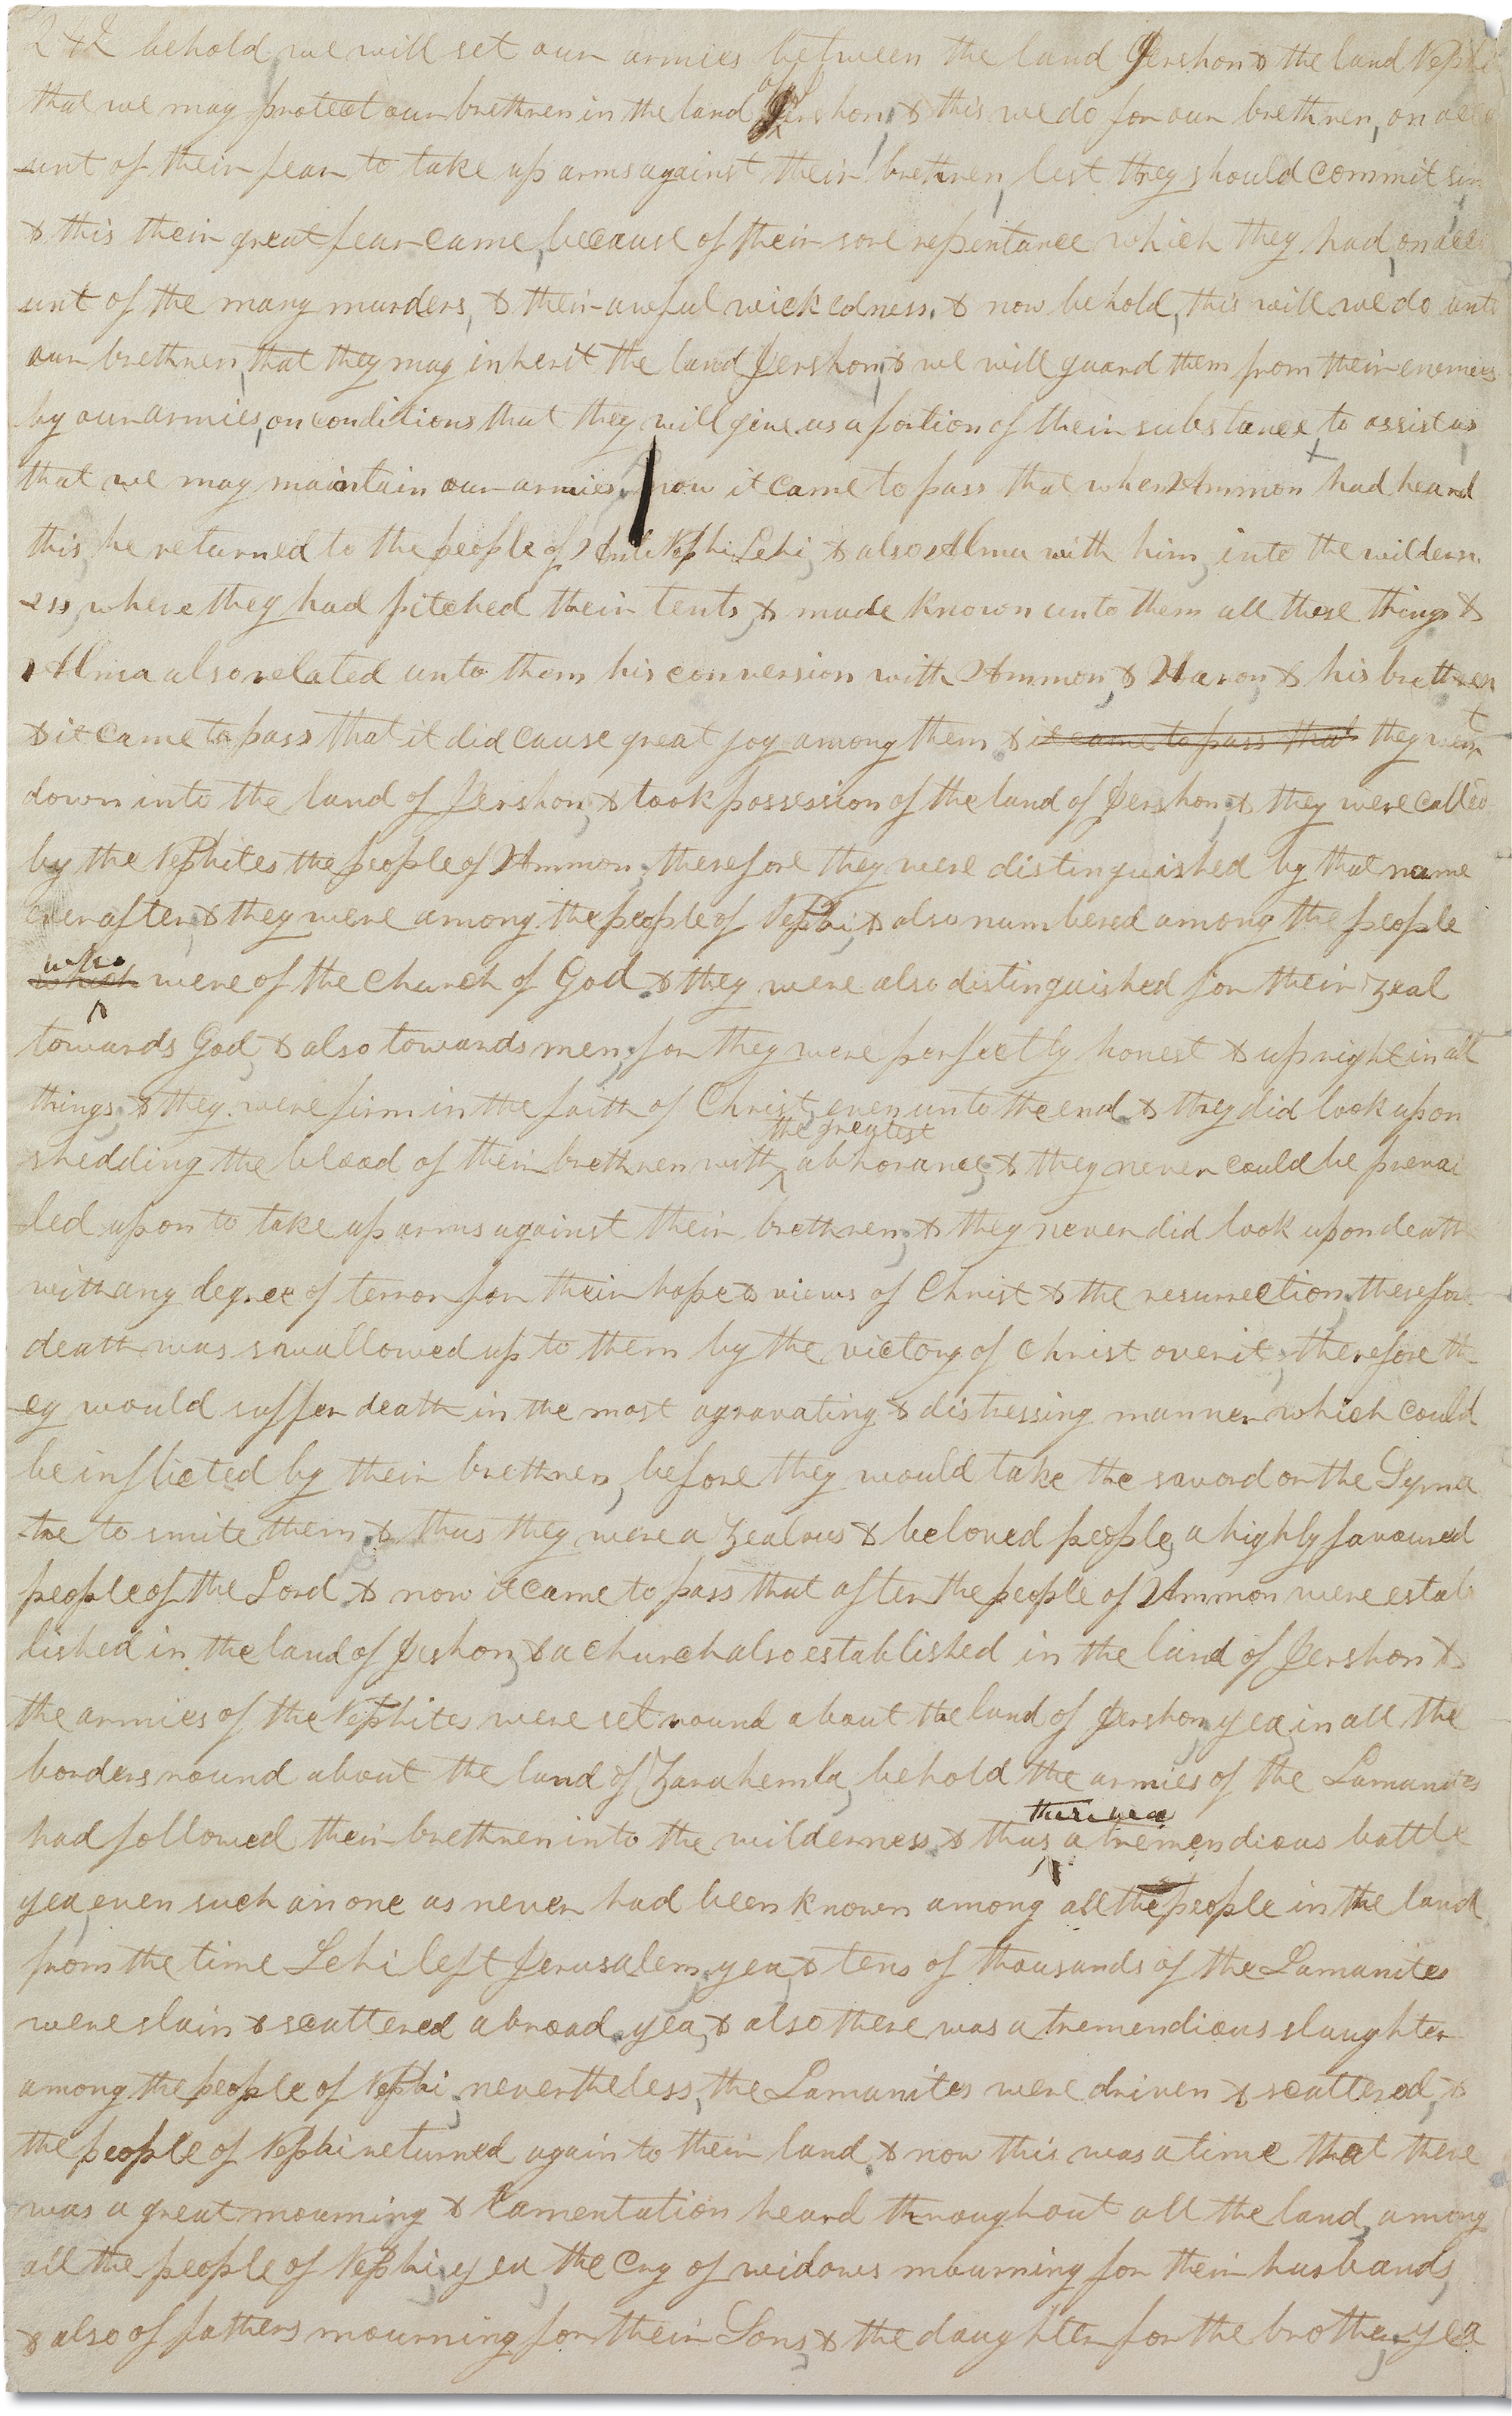 242 behold we will set our armies between the land Jershon & the land Nephi
that we may protect our brethren in the land Jershon, & this we do for our brethren, on acco
unt of their fear to take up arms against their brethren, lest they should commit sin
& this their great fear came, because of their sore repentance which they had, on acco
unt of the many murders, & their awful wickedness. & now behold, this will we do unto
our brethren, that they may inherit the land Jershon; & we will guard them from their enemies
by our armies, on conditions that they will give us a portion of their substance to assist us
that we may maintain our armies. now it came to pass that when Ammon had heard
this, he returned to the people of Anti Nephi Lehi, & also Alma with him, into the wildern
ess, where they had pitched their tents, & made known unto them all these things &
Alma also related unto them his conversion with Ammon, & Aaron, & his brethren
& it came to pass that it did cause great joy among them & it came to pass that they went
down into the land of Jershon, & took possession of the land of Jershon, & they were called
by the Nephites the people of Ammon; therefore they were distinguished by that name
ever after, & they were among the people of Nephi, & also numbered among the people
who
which were of the church of God & they were also distinguished for their zeal
towards God, & also towards men; for they were perfectly honest & upright in all
things, & they were firm in the faith of Christ, even unto the end. & they did look upon
the greatest
shedding the blood of their brethren with abhorance; & they never could be prevai
led upon to take up arms against their brethren; & they never did look upon death
with any degree of terror for their hope & views of Christ & the resurrection. therefore
death was swallowed up to them by the victory of Christ over it; therefore th
ey would suffer death in the most agravating & distressing manner which could
be inflicted by their brethren, before they would take the sword or the Syme
tre to smite them. & thus they were a zealous & beloved people, a highly favoured
people of the Lord. & now it came to pass that after the people of Ammon were estab
lished in the land of Jershon, & a church also established in the land of Jershon &
the armies of the Nephites were set round about the land of Jershon, yea, in all the
borders round about the land of Zarahemla, behold the armies of the Lamanites
had followed their brethren into the wilderness. & thus a tremendious battle
yea, even such an one as never had been known among all the people in the land
from the time Lehi left Jerusalem, yea, & tens of thousands of the Lamanites
were slain & scattered abroad. yea, & also there was a tremendious slaughter
among the people of Nephi, nevertheless, the Lamanites were driven & scattered, &
the people of Nephi returned again to their land. & now this was a time that there
was a great mourning & lamentation heard throughout all the land, among
all the people of Nephi, yea, the cry of widows mourning for their husbands,
& also of fathers mourning for their Sons, & the daughter for the brother, yea